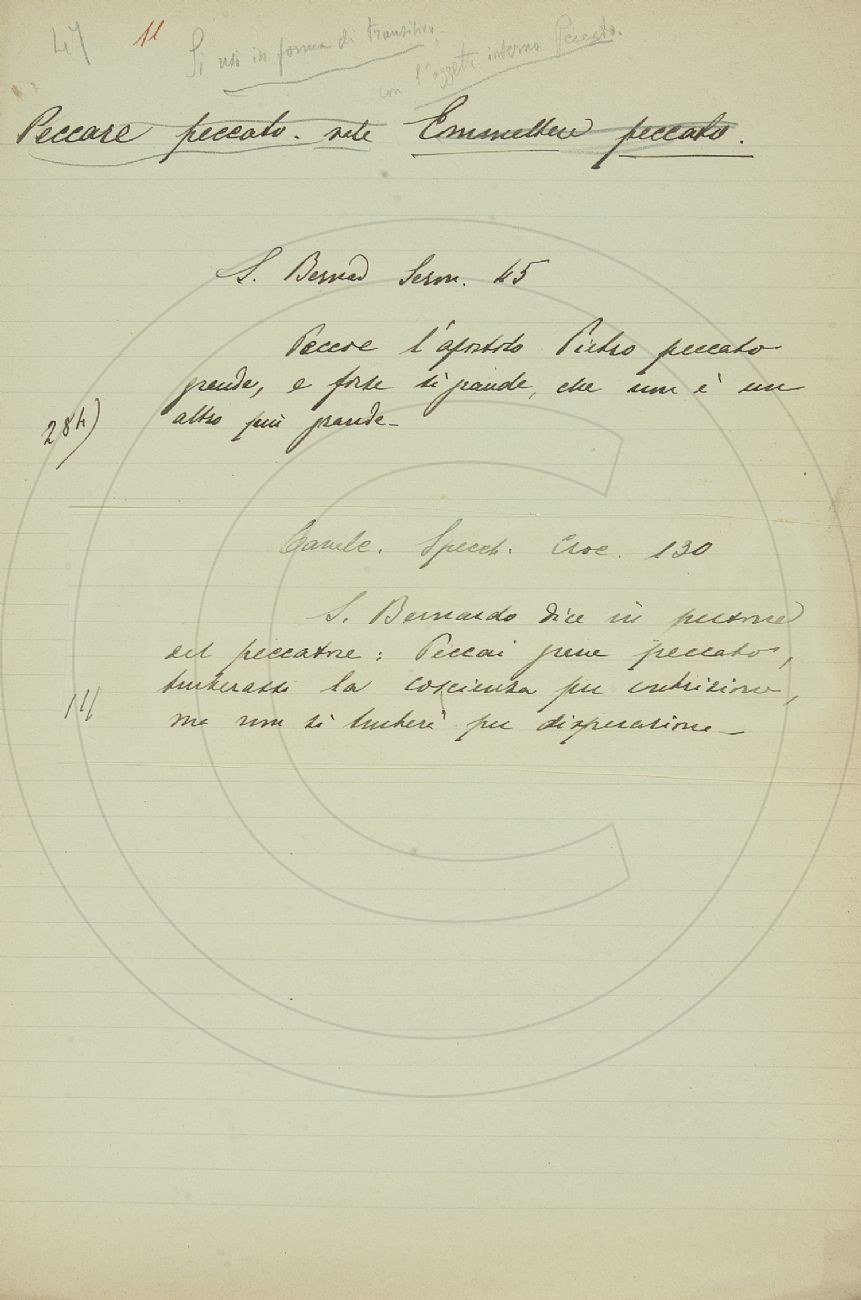 47 11 Si usò in forma di transitivo,
con l'oggetto interno Peccato.
Peccare peccato. vale Commettere peccato.
S. Bernard Serm. 45
Peccoe l'apostolo Pietro peccato
grande, e forse sì grande, che non è un
altro più grande.
284)
Cavalc. Specch. Croc. 130
S. Bernardo dice in persona
del peccatore: Peccai grave peccato,
turberassi la coscienza per contrizione,
ma non si turberà per disperazione